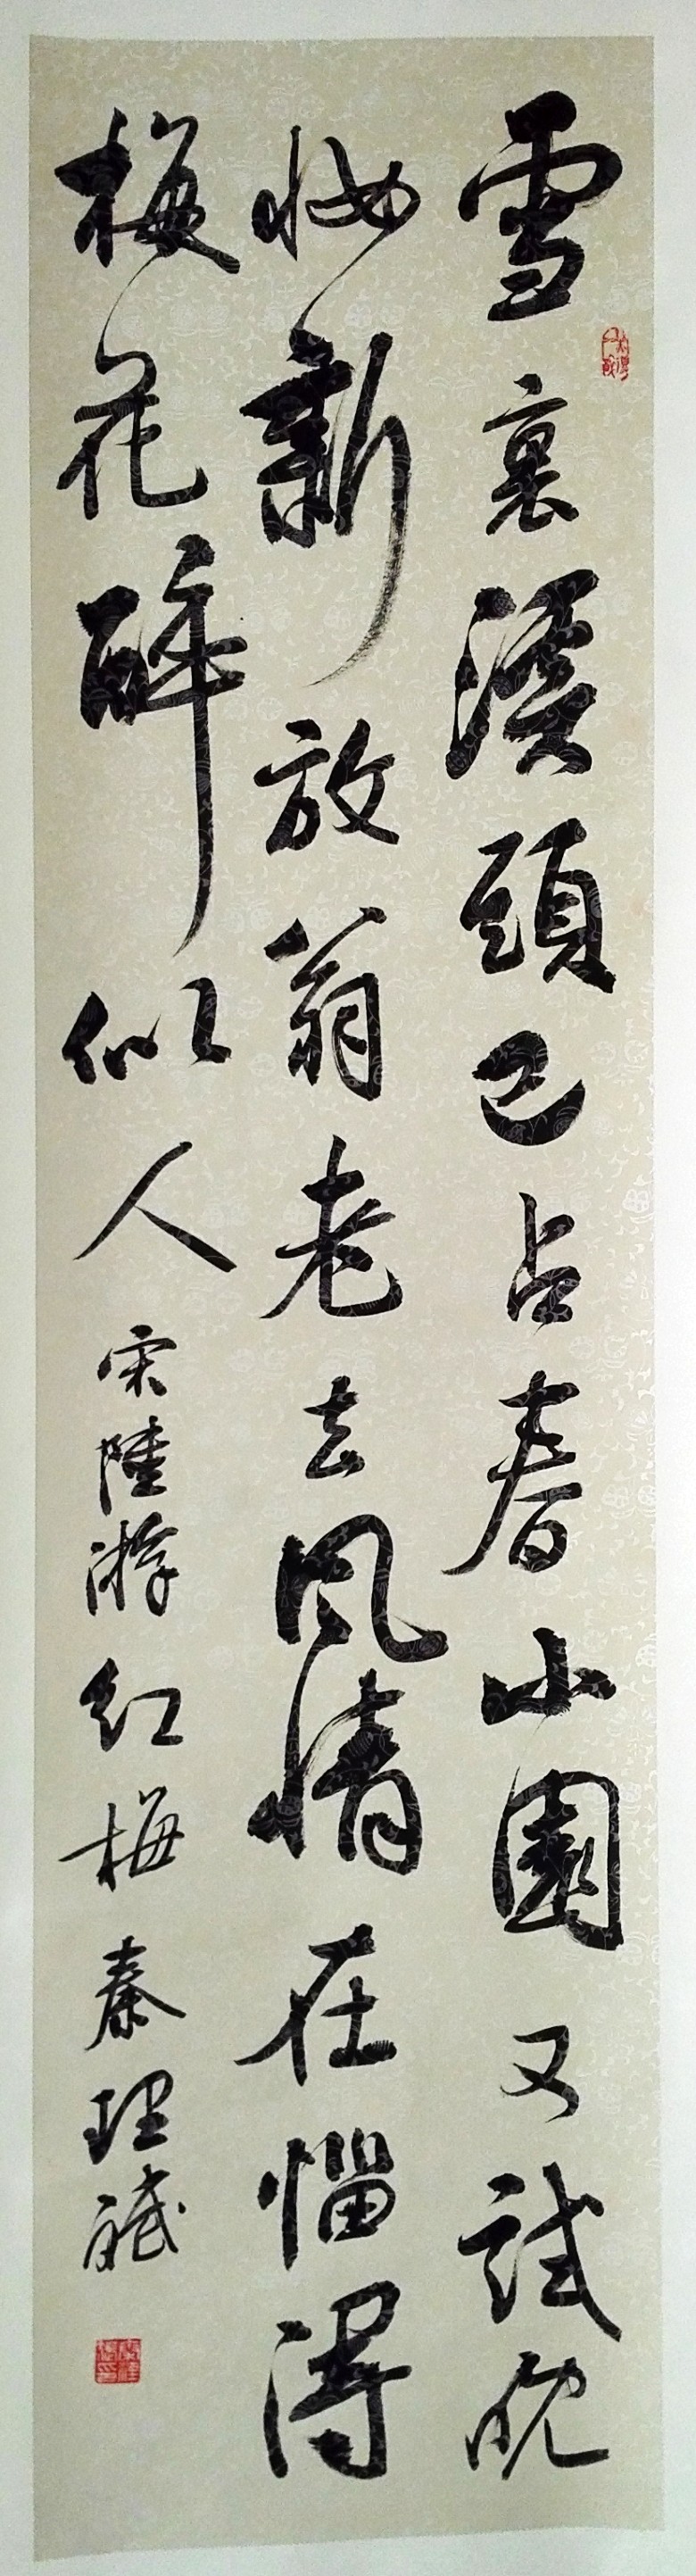 雪裏溪頭已占春小園又試晚
妝新放翁老去風情在惱得
梅花醉似人 宋陸游紅梅 秦理